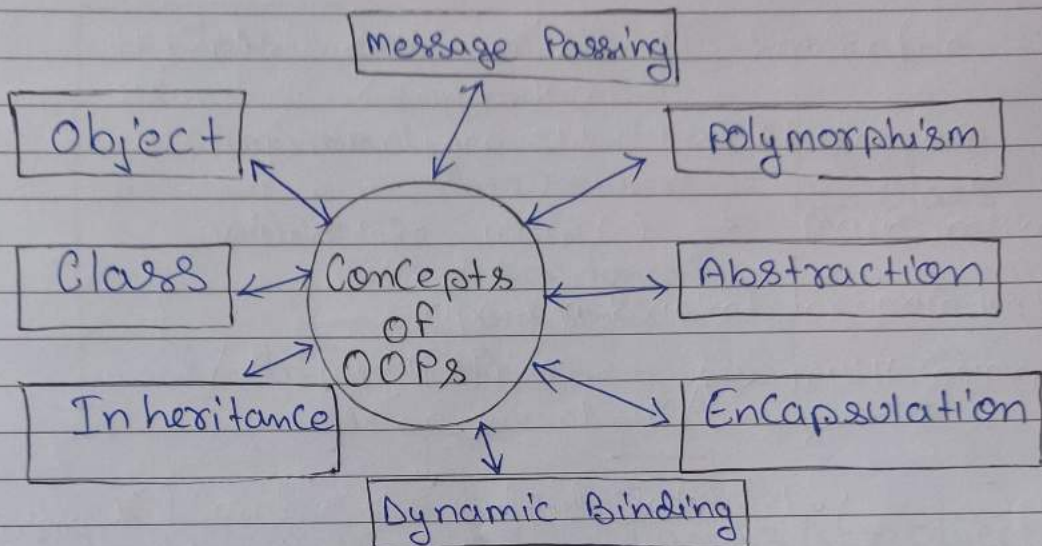 Message Passing
Object
Polymorphism
Class
Concepts
of
OOPs
Abstraction
Inheritance
Encapsulation
Dynamic Binding